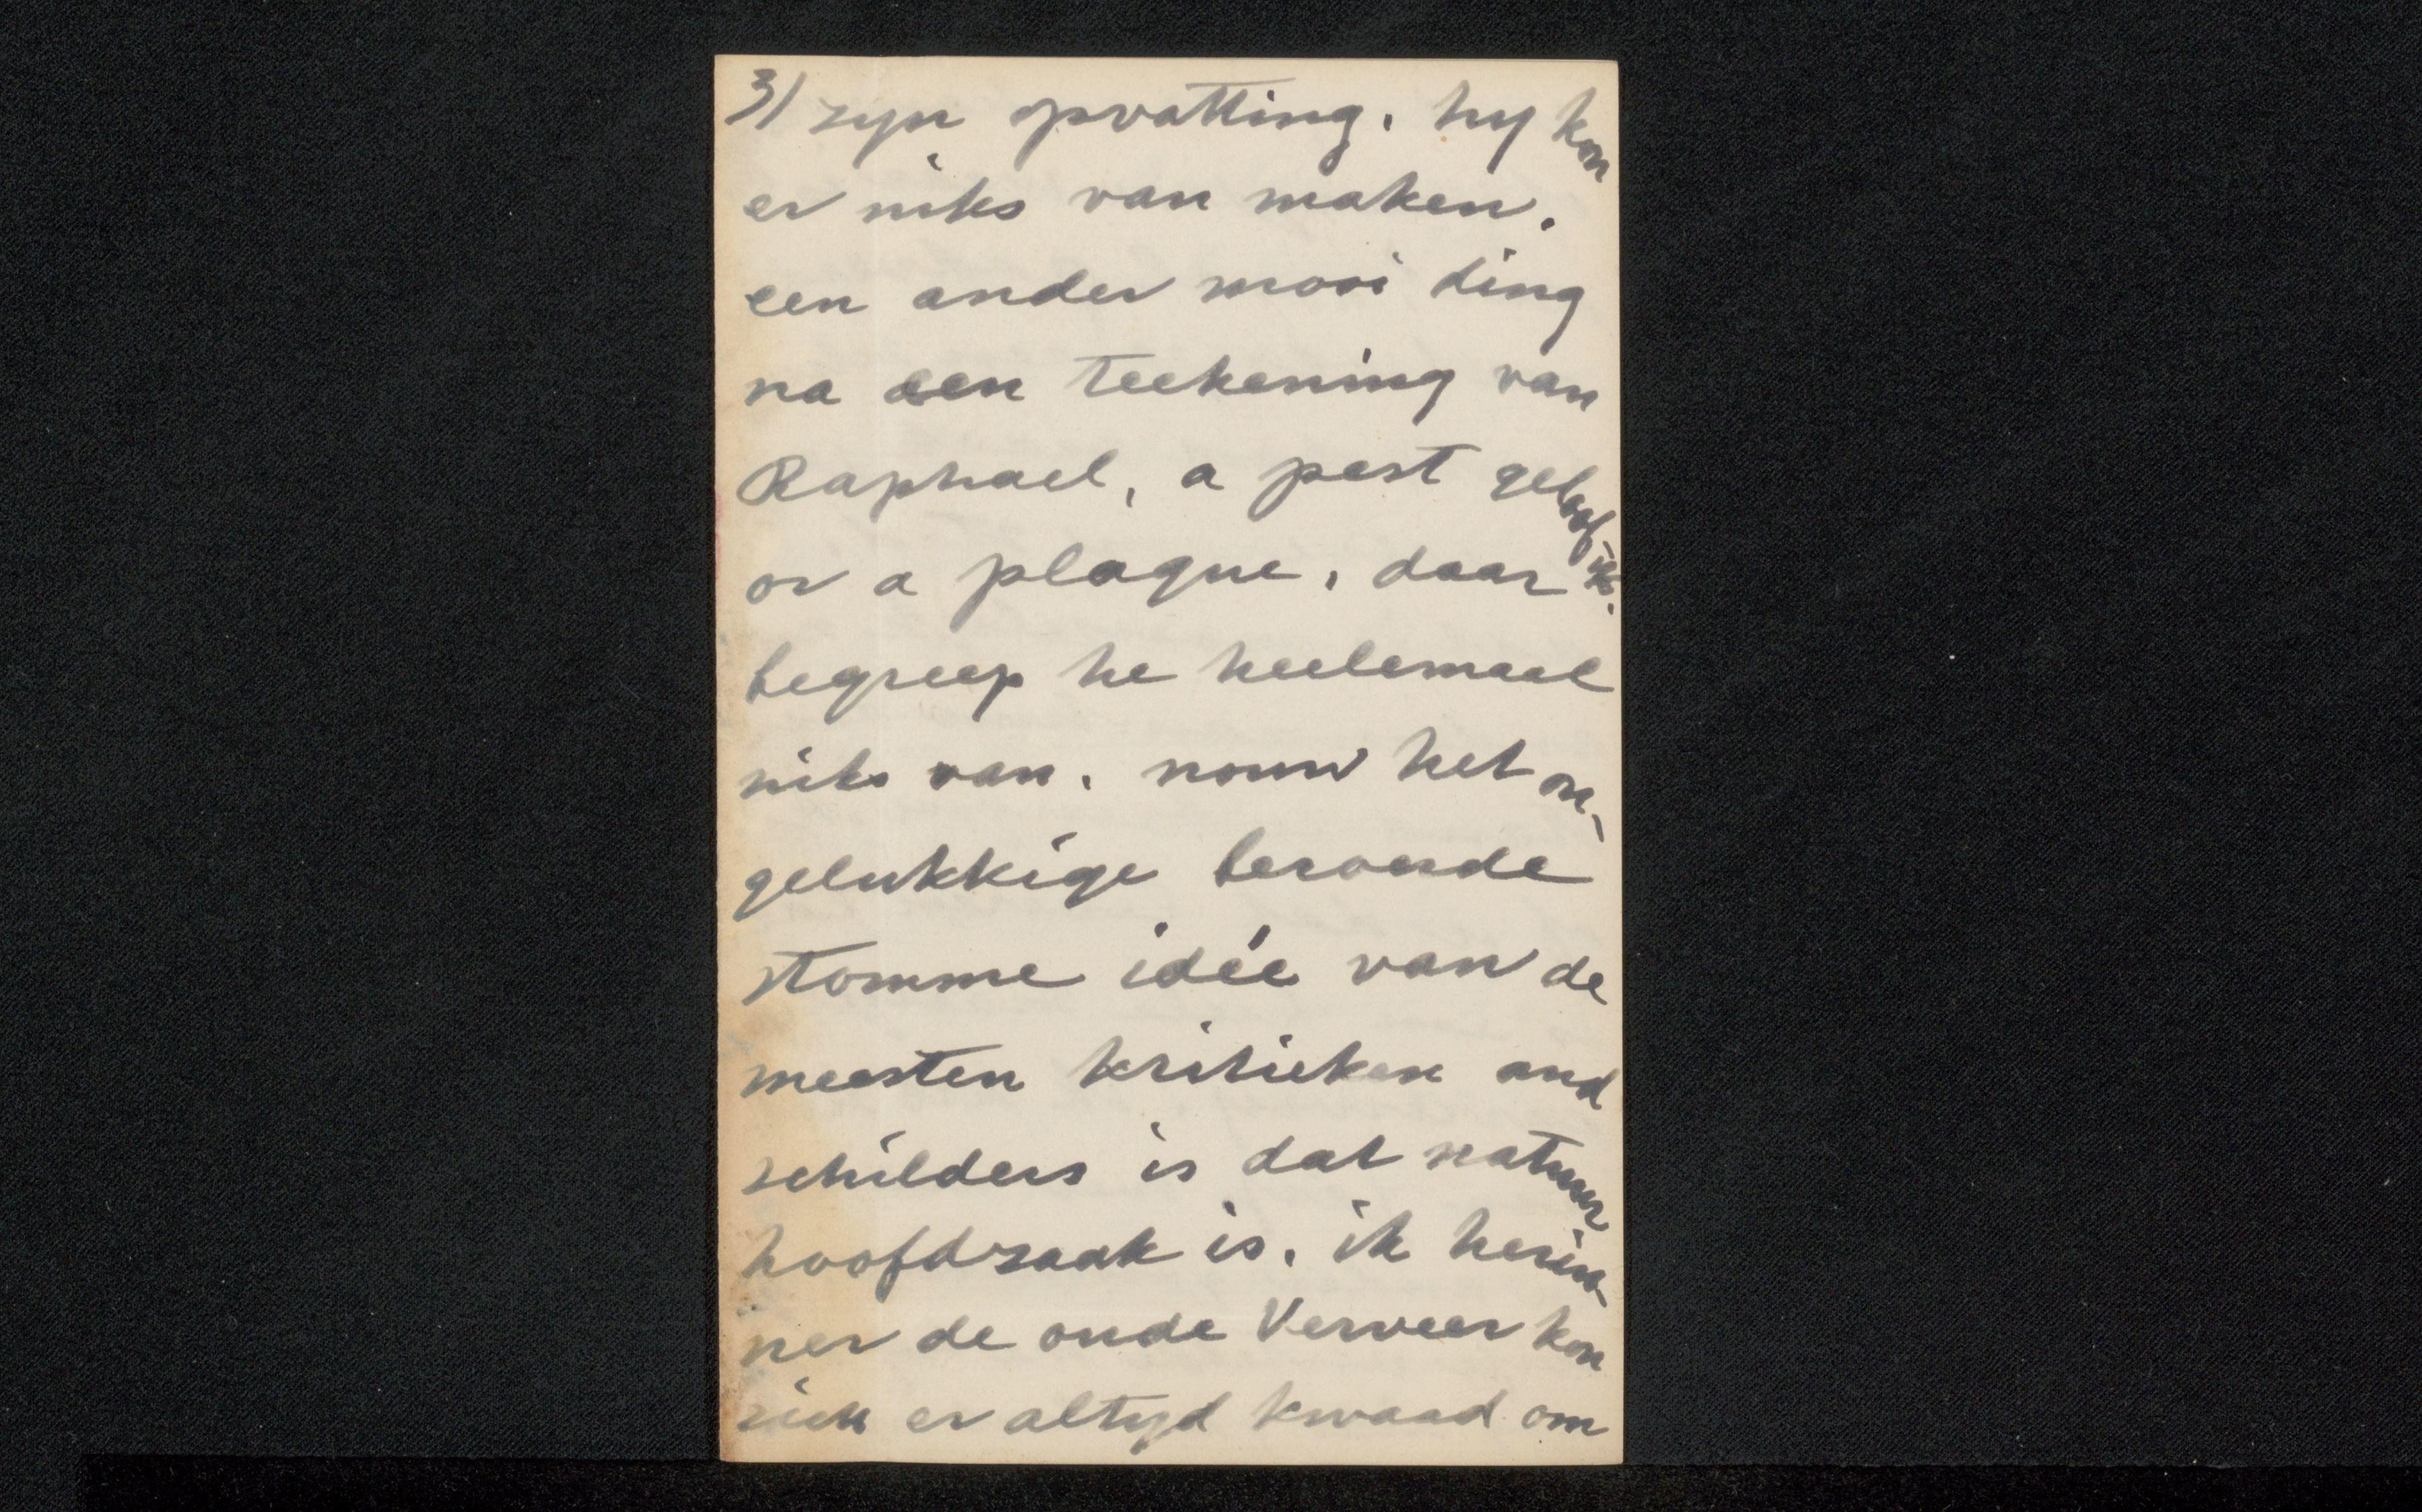 3/ zyn opvatting. hy kon
er niks van maken.
een ander mooi ding
na een teekening van
Raphael, a pest geloof ik.
or a plague, daar
begreep he heelemaal
niks van. nouw het on-
gelukkige beroerde
stomme idée van de
meesten kritieken and
schilders is dat natuur
hoofdzaak is. ik herin-
ner de oude Verveer kon
zich er altyd kwaad om